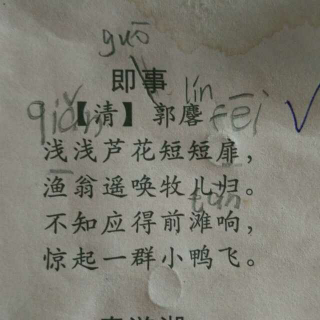 guō
即事
lín
【清】 郭麐
qiǎn
fēi
浅浅芦花短短扉，
渔翁遥唤牧儿归。
tān
不知应得前滩响，
惊起一群小鸭飞。